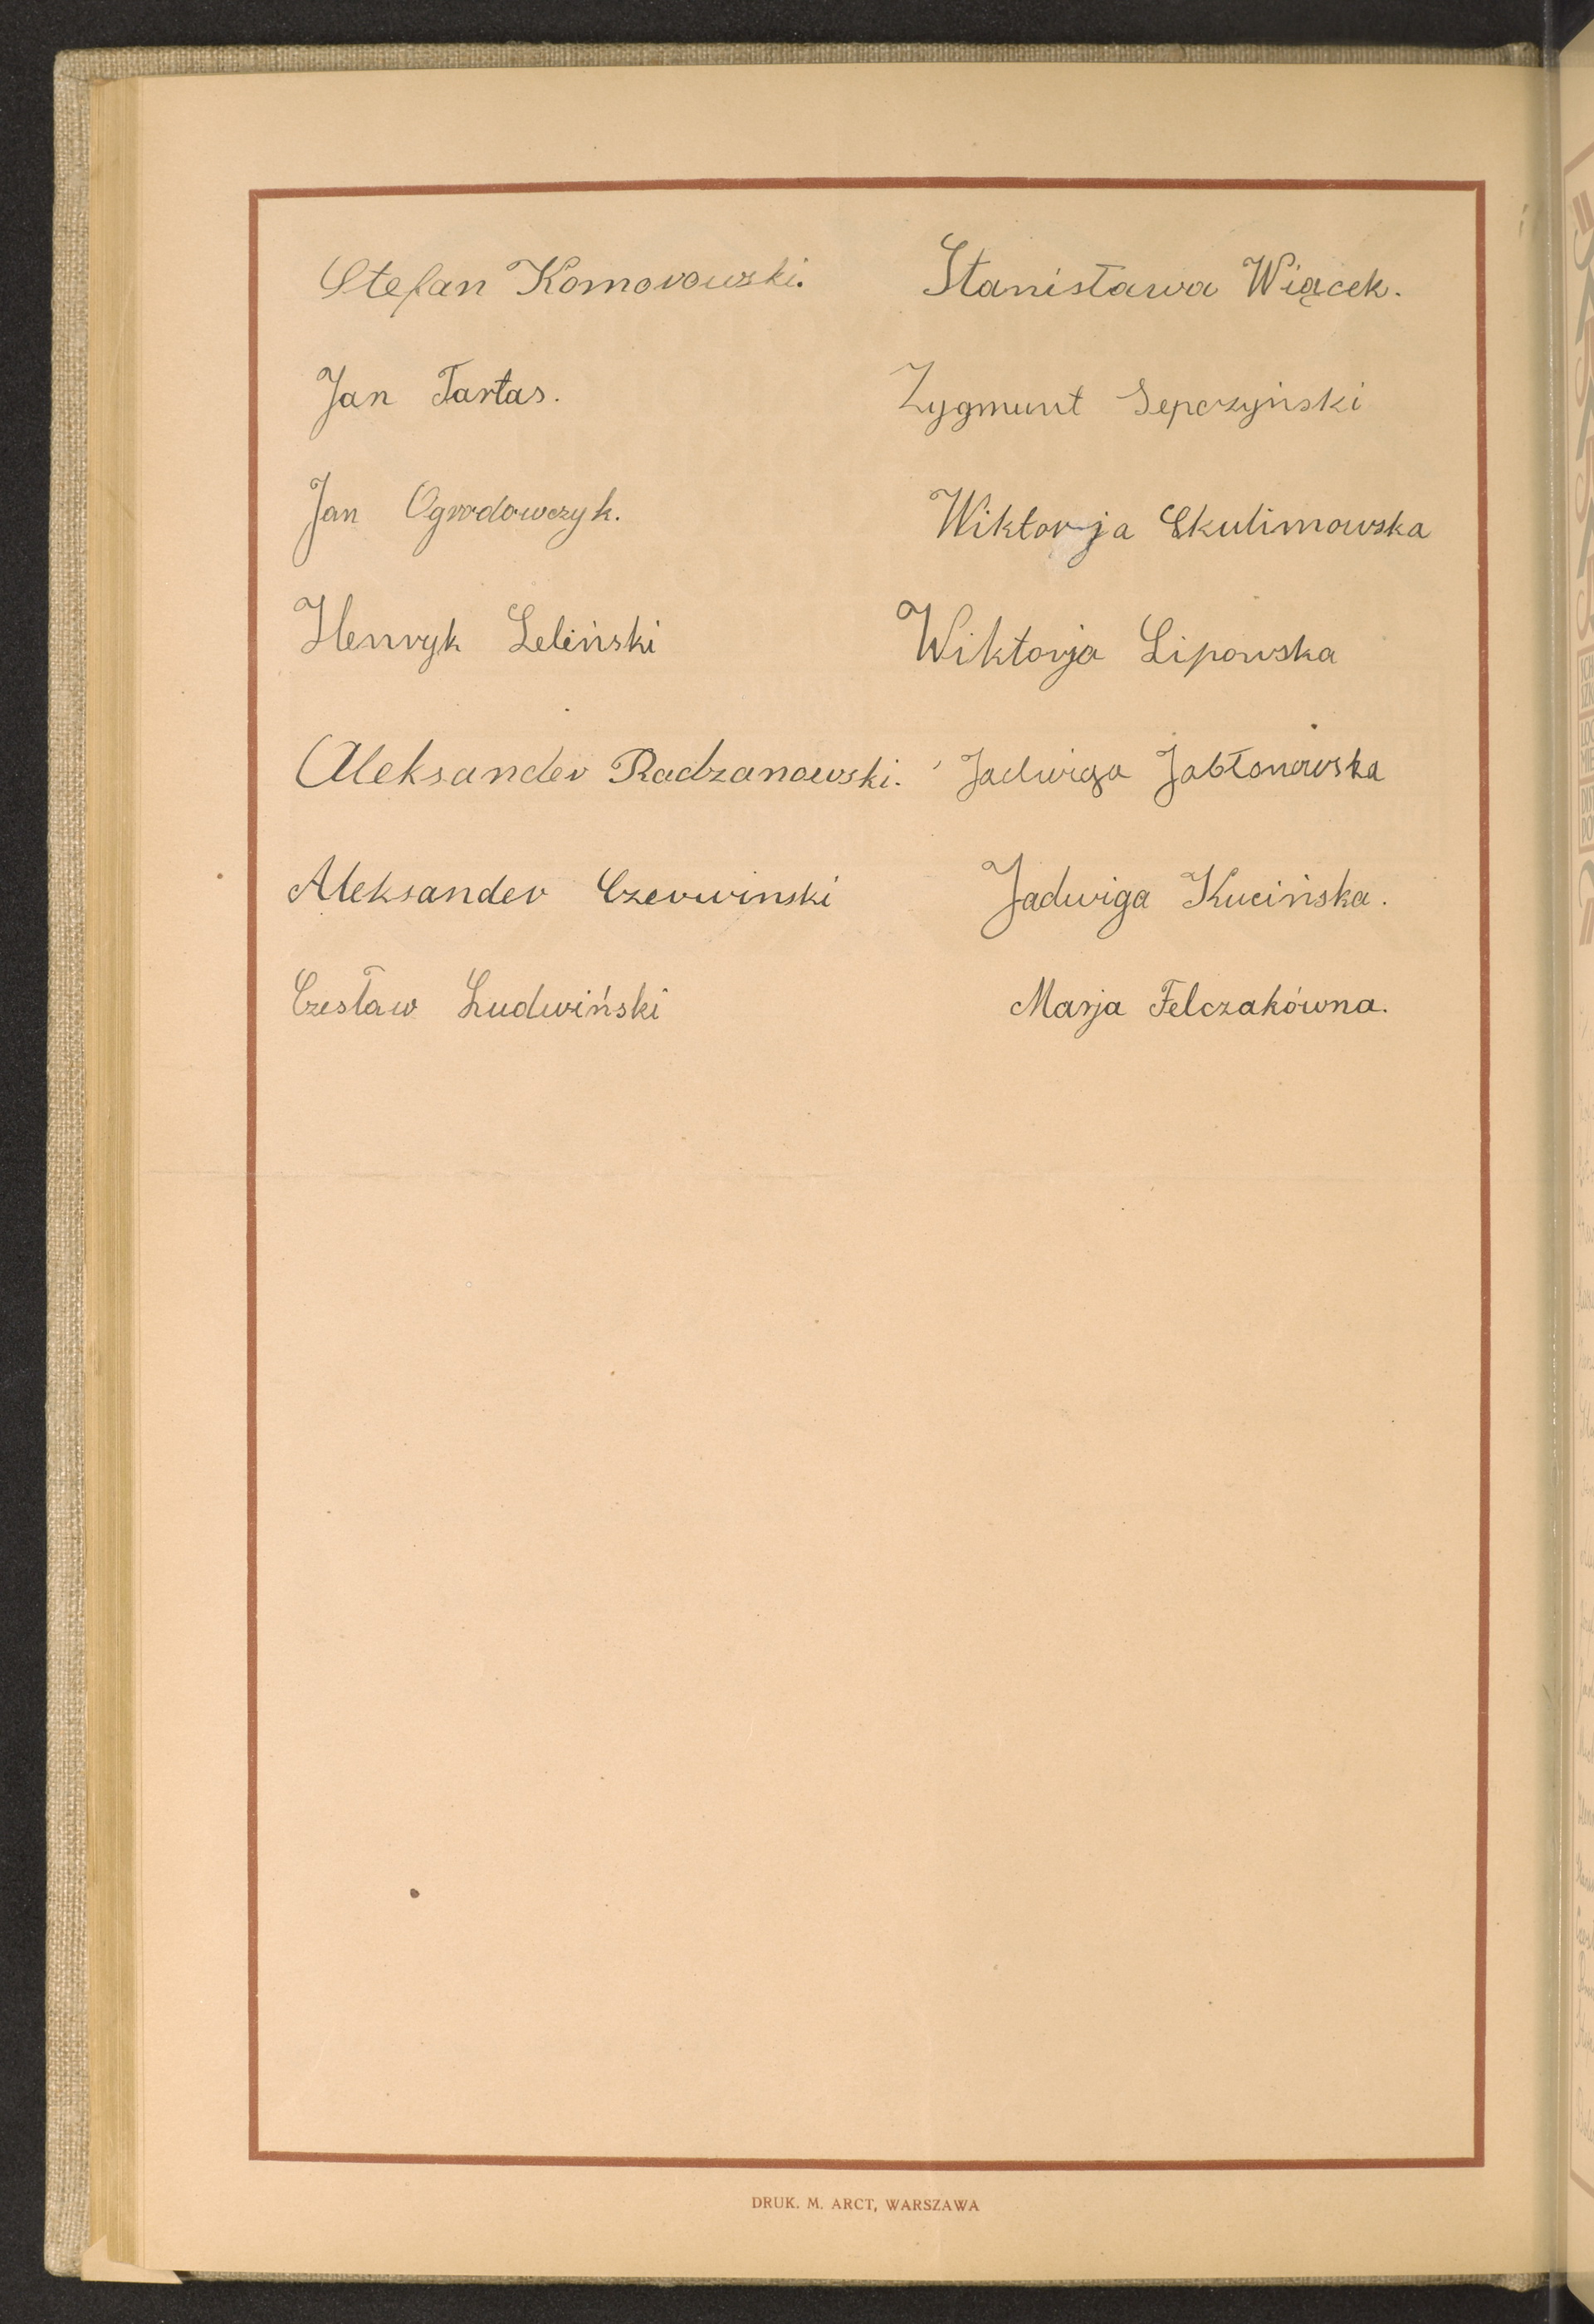 Stefan Komorowski. Stanisława Wiącek.
Jan Tartas. Zygmunt Sepczyński
Jan Ogrodowczyk. Wiktorja Skulimowska
Henryk Leliński Wiktorja Lipowska
Aleksander Radzanowski. Jadwiga Jabłonowska
Aleksander Czerwinski Jadwiga Kucińska.
Czesław Ludwiński Marja Felczakówna.
DRUK. M. ARCT, WARSZAWA